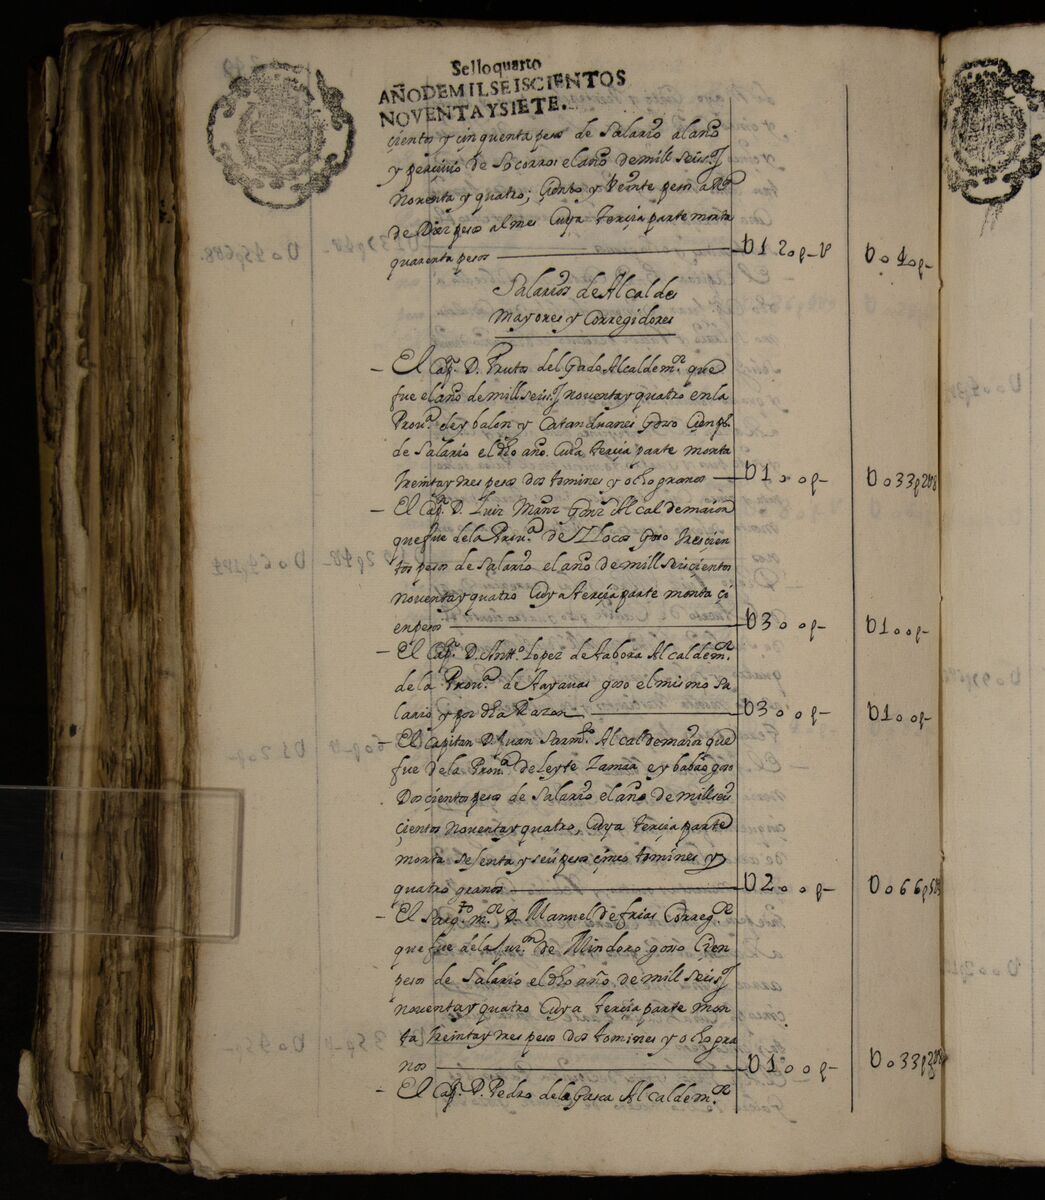 Selloquarto
AÑODEMILSEISCIENTOS
NOVENTAYSIETE.
çientos y çinquenta pesos de Salario alaño
y perçivio de Socorros elaño demill seis.
Noventa y quatro; Çiento y Veinte pesos
de Diez pesos almes Cuya terçia parte monta
quarenta pesos U120p-U Uo40p-
Salarios de Alcaldes
Mayores y Corregidores
- El Capn. D. Frutos delGado Alcaldemr. que
fue elaño demill seis. noventa y quatro enla
Prova. deybalon y Catanduanes Goso Çien ps.
de Salario el dho año. Cuia terçia parte monta
treinta y tres pesos dos tomines y ocho granos U1oop- Uo33p2t8
- El Capn. D. Luis Alcaldemaior
que fue dela Prova. de Yllocos Goso tresçien
tos pesos de Salario elaño de mill seisçientos
Noventa y quatro Cuya terçia parte monta çi
enpesos U3oop- U1oop-
- El Capn. D. Antto. Lopez de tabora Alcaldemr.
de la Prova. de tayavas goso elmismo Sa
lario y por dha Razon U3oop- U1oop-
- El Capitan D. Juan Sarmto. Alcaldemaior que
fue dela Prova. deleyte Samar e ybabao goso
Dosçientos pesos de Salario elaño de millseis
çientos Noventa y quatro, Cuya terçia parte
monta sesenta y seis pesos çinco tomines y
quatro granos U2oop- Uo66p5t4
- El Sargto. mr. D. Manuel de frias Correg.or
que fue dela Jur.on de Mindoro goso Çien
pesos de Salario eldho año de mill seis.
noventa y quatro Cuya terçia parte mon
ta treinta y tres pesos dos tomines y ocho gra
nos U1oop- Uo33p2t8
- El Capn. D. Pedro dela Gasca Alcaldemr.